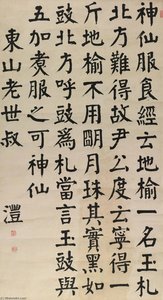 神仙服食經云地榆一名玉札
北方難得故尹公度云寧得一
斤地榆不用明月珠其實黑如
豉北方呼豉爲札當言玉豉與
五加煮服之可神仙
東山老世叔
澧